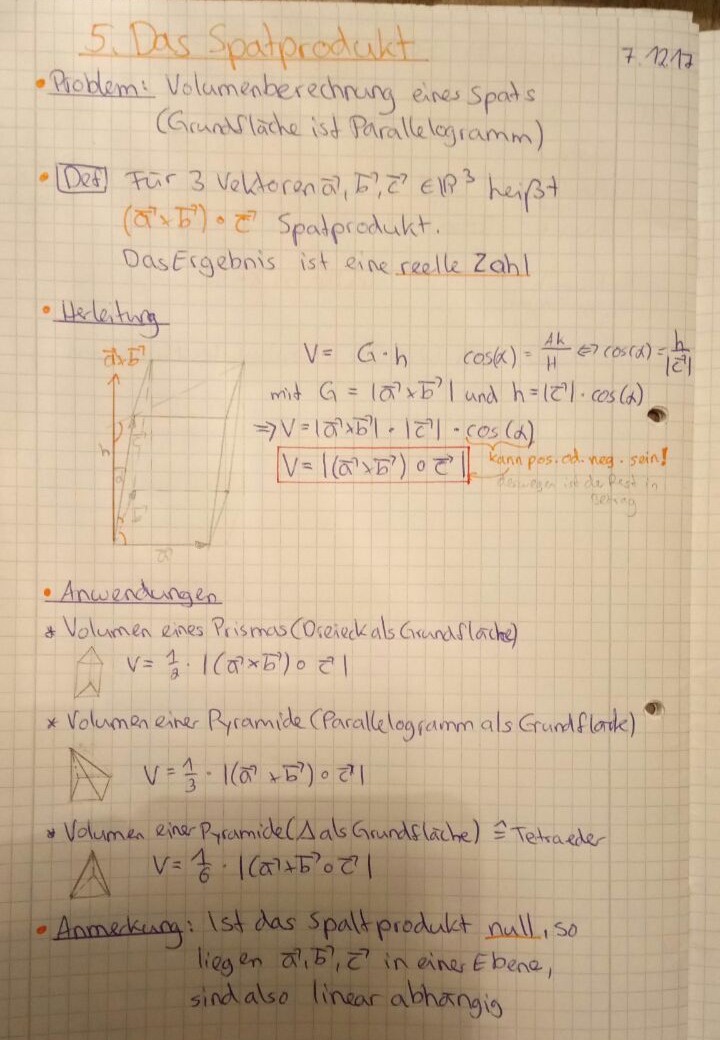 5. Das Spatprodukt
7.12.17
• Problem: Volumenberechnung eines Spats
(Grundfläche ist Parallelogramm)
• Def Für 3 Vektoren a⃗, b⃗, c⃗ ∈ℝ³ heißt
(a⃗×b⃗)∘c⃗ Spatprodukt.
Das Ergebnis ist eine reelle Zahl
• Herleitung
a⃗×b⃗
h
a⃗
V= G·h cos(α) = Ak/H ⇔ cos(α) = h/|c⃗|
mit G = |a⃗×b⃗| und h=|c⃗|·cos(α)
⇒V=|a⃗×b⃗|·|c⃗|·cos(α)
V=|(a⃗×b⃗)∘c⃗| kann pos. od. neg. sein!
deswegen ist der Rest in
Betrag
• Anwendungen
* Volumen eines Prismas (Dreieck als Grundfläche)
V= 1/2 · |(a⃗×b⃗)∘c⃗|
* Volumen einer Pyramide (Parallelogramm als Grundfläche)
V= 1/3 · |(a⃗×b⃗)∘c⃗|
* Volumen einer Pyramide (Δ als Grundfläche) ≙ Tetraeder
V= 1/6 · |(a⃗×b⃗∘c⃗|
• Anmerkung: Ist das Spaltprodukt null, so
liegen a⃗, b⃗, c⃗ in einer Ebene,
sind also linear abhängig